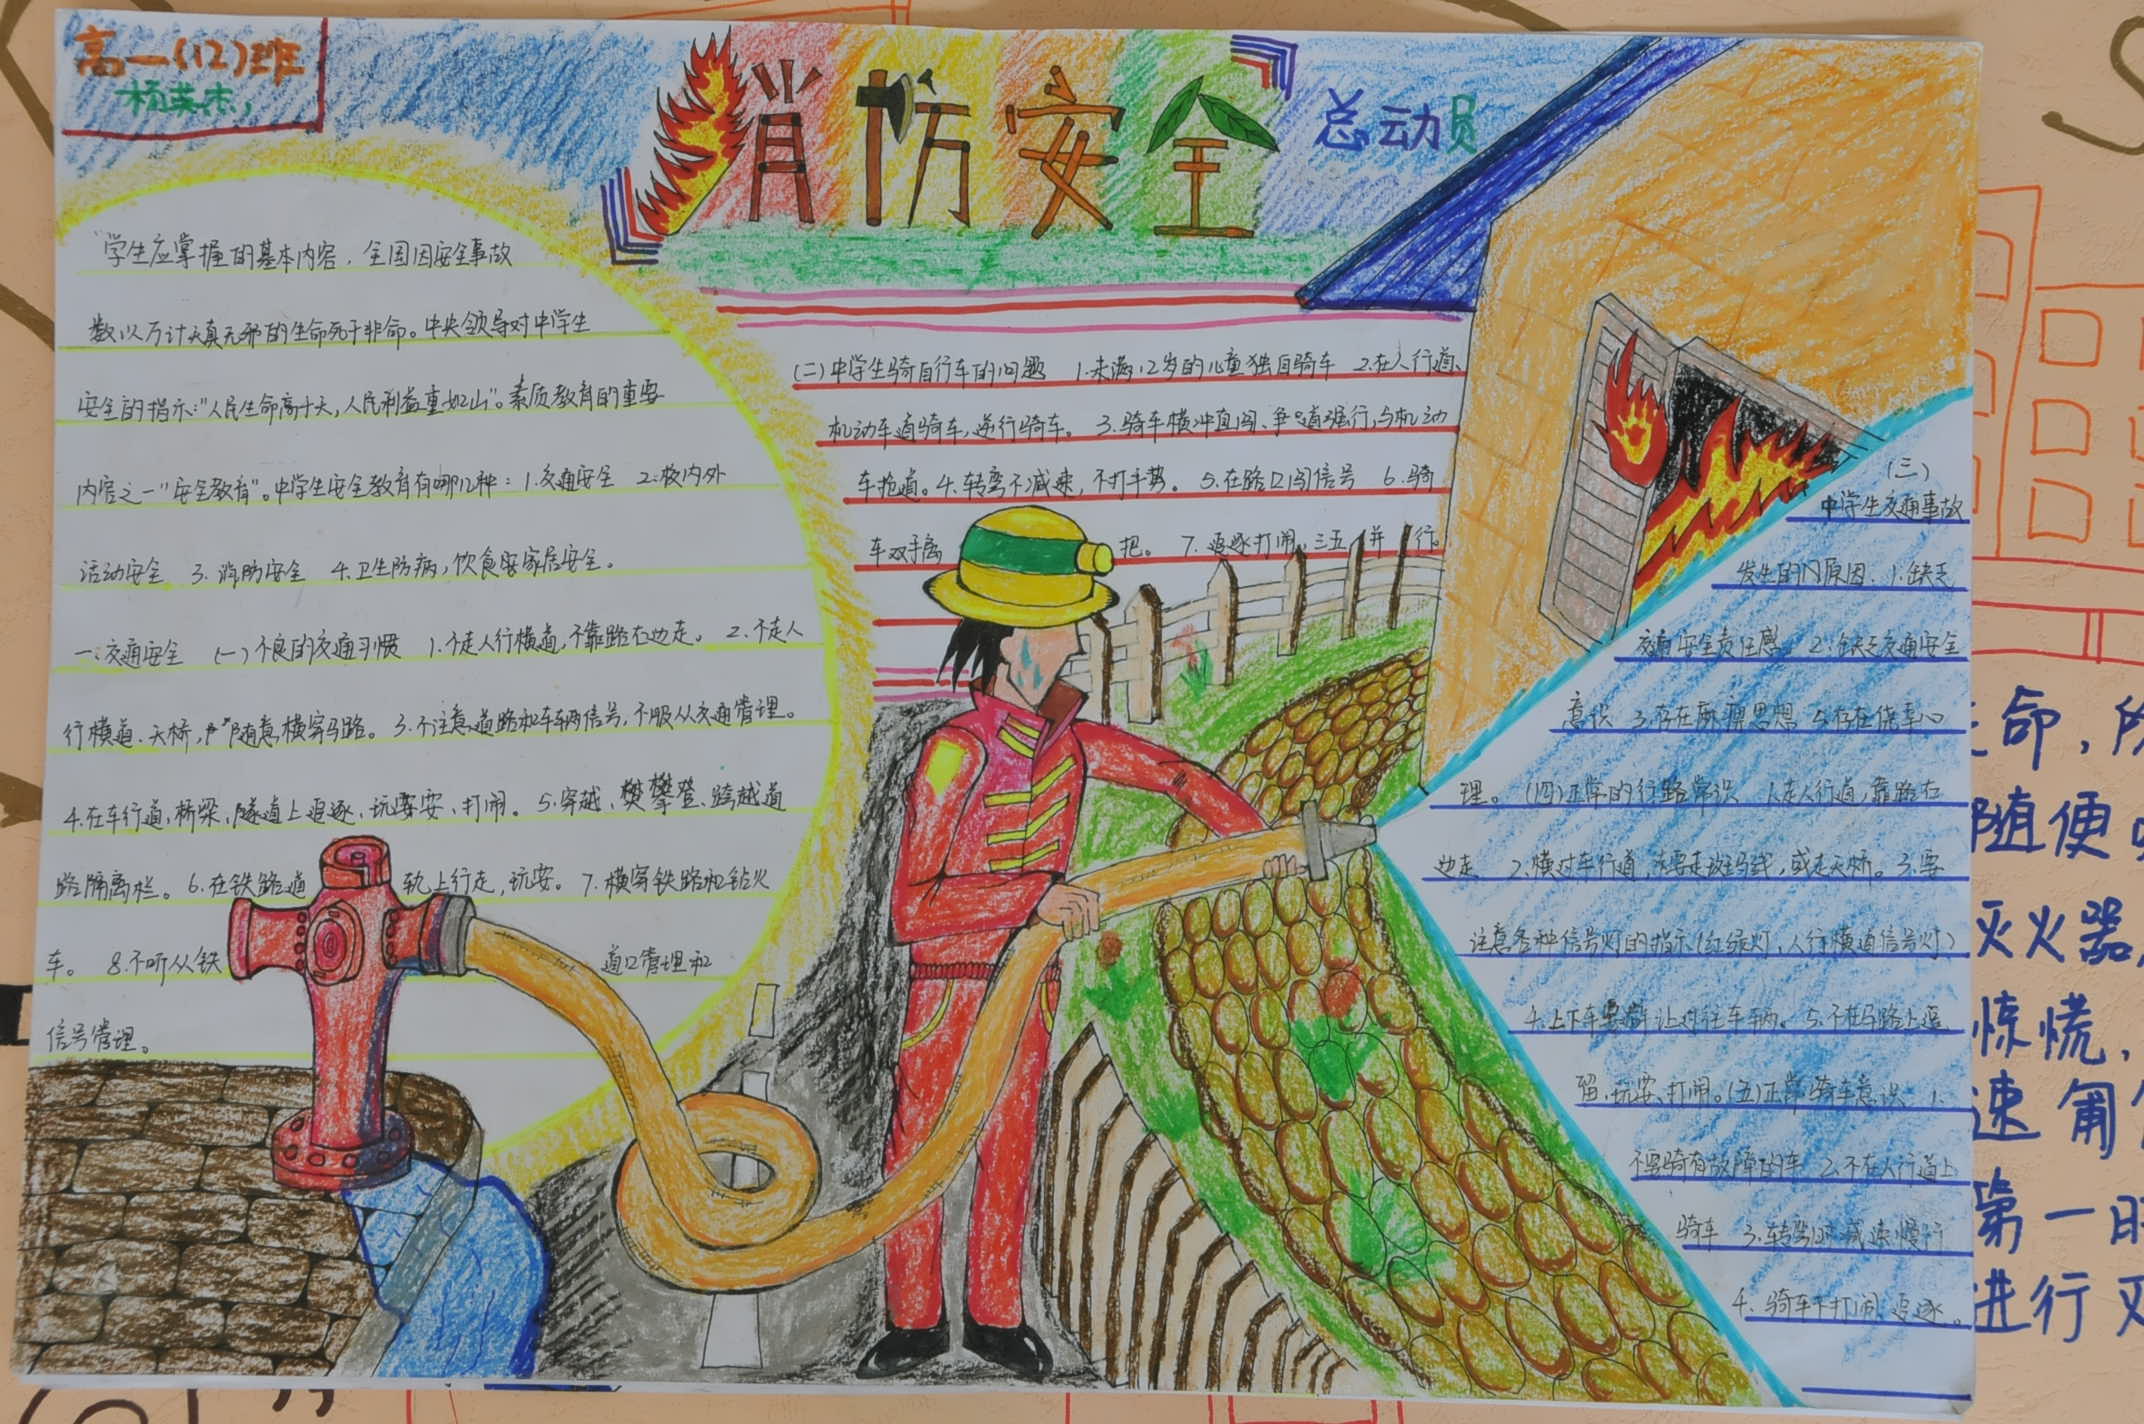 高一(12)班
消防安全
总动员
学生应掌握的基本内容，全国因安全事故
数以万计天真无邪的生命死于非命。中央领导对中学生
安全的指示："人民生命高于天，人民利益重如山"。素质教育的重要
内容之一"安全教育"。中学生安全教育有哪几种：1.交通安全 2.校内外
活动安全 3.消防安全 4.卫生防病，饮食安家居安全。
一：交通安全 (一)不良的交通习惯 1.不走人行横道，不靠路右边走。 2.不走人
行横道、天桥，随意横穿马路。 3.不注意道路和车辆信号，不服从交通管理。
4.在车行道，桥梁，隧道上追逐，玩耍、打闹。 5.穿越、攀登、跨越道
路隔离栏。 6.在铁路道轨上行走，玩安。 7.横穿铁路和钻火
车。 8.不听从铁道口管理和
信号管理。
(二)中学生骑自行车的问题 1.未满12岁的儿童独自骑车 2.在人行道、
机动车道骑车，逆行骑车。 3.骑车横冲直闯、争道强行，与机动
车抢道。4.转弯不减速，不打手势。 5.在路口闯信号 6.骑
车双手离把。 7.追逐打闹，三五并行。
(三)
中学生交通事故
发生的原因、1.缺乏
交通安全责任感 2.缺乏交通安全
意识 3.存在麻痹思想 5.存在侥幸心
理。 (四)正常的行路常识 1.走人行道，靠路右
边走 2.横过车行道，要走斑马线，或走天桥。 3.要
注意各种信号灯的指示(红绿灯，人行横道信号灯)
4.上下车让对往车辆。 5.不在马路上逗
留，玩安、打闹。(五)正常骑车意识 1.
不要骑有故障的车 2.不在人行道上
骑车 3.转弯时减速慢行
4.骑车不打闹，追逐。
命，
随便
灭火器，
惊慌，
速匍
第一时
进行灭